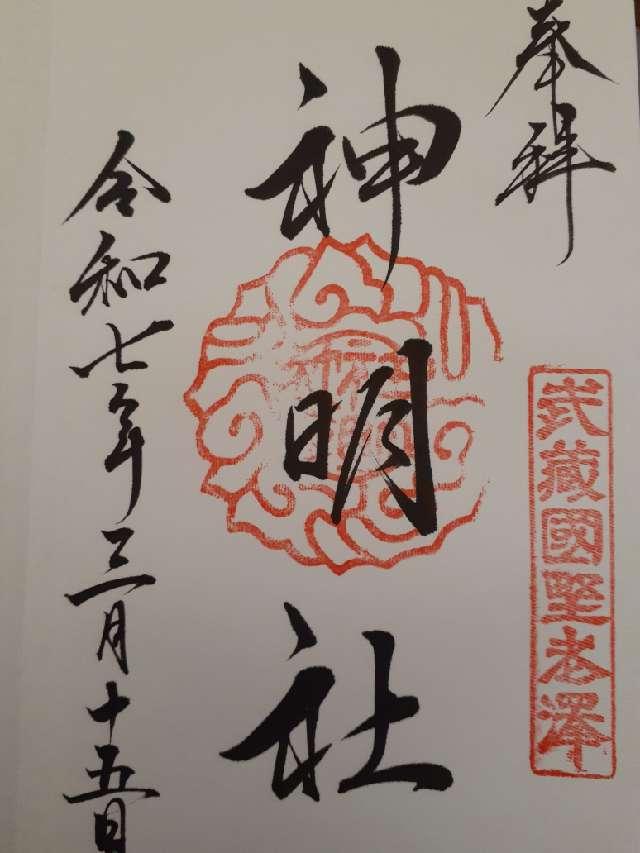 奉拝
武蔵國野老澤
神明社
令和七年三月十五日